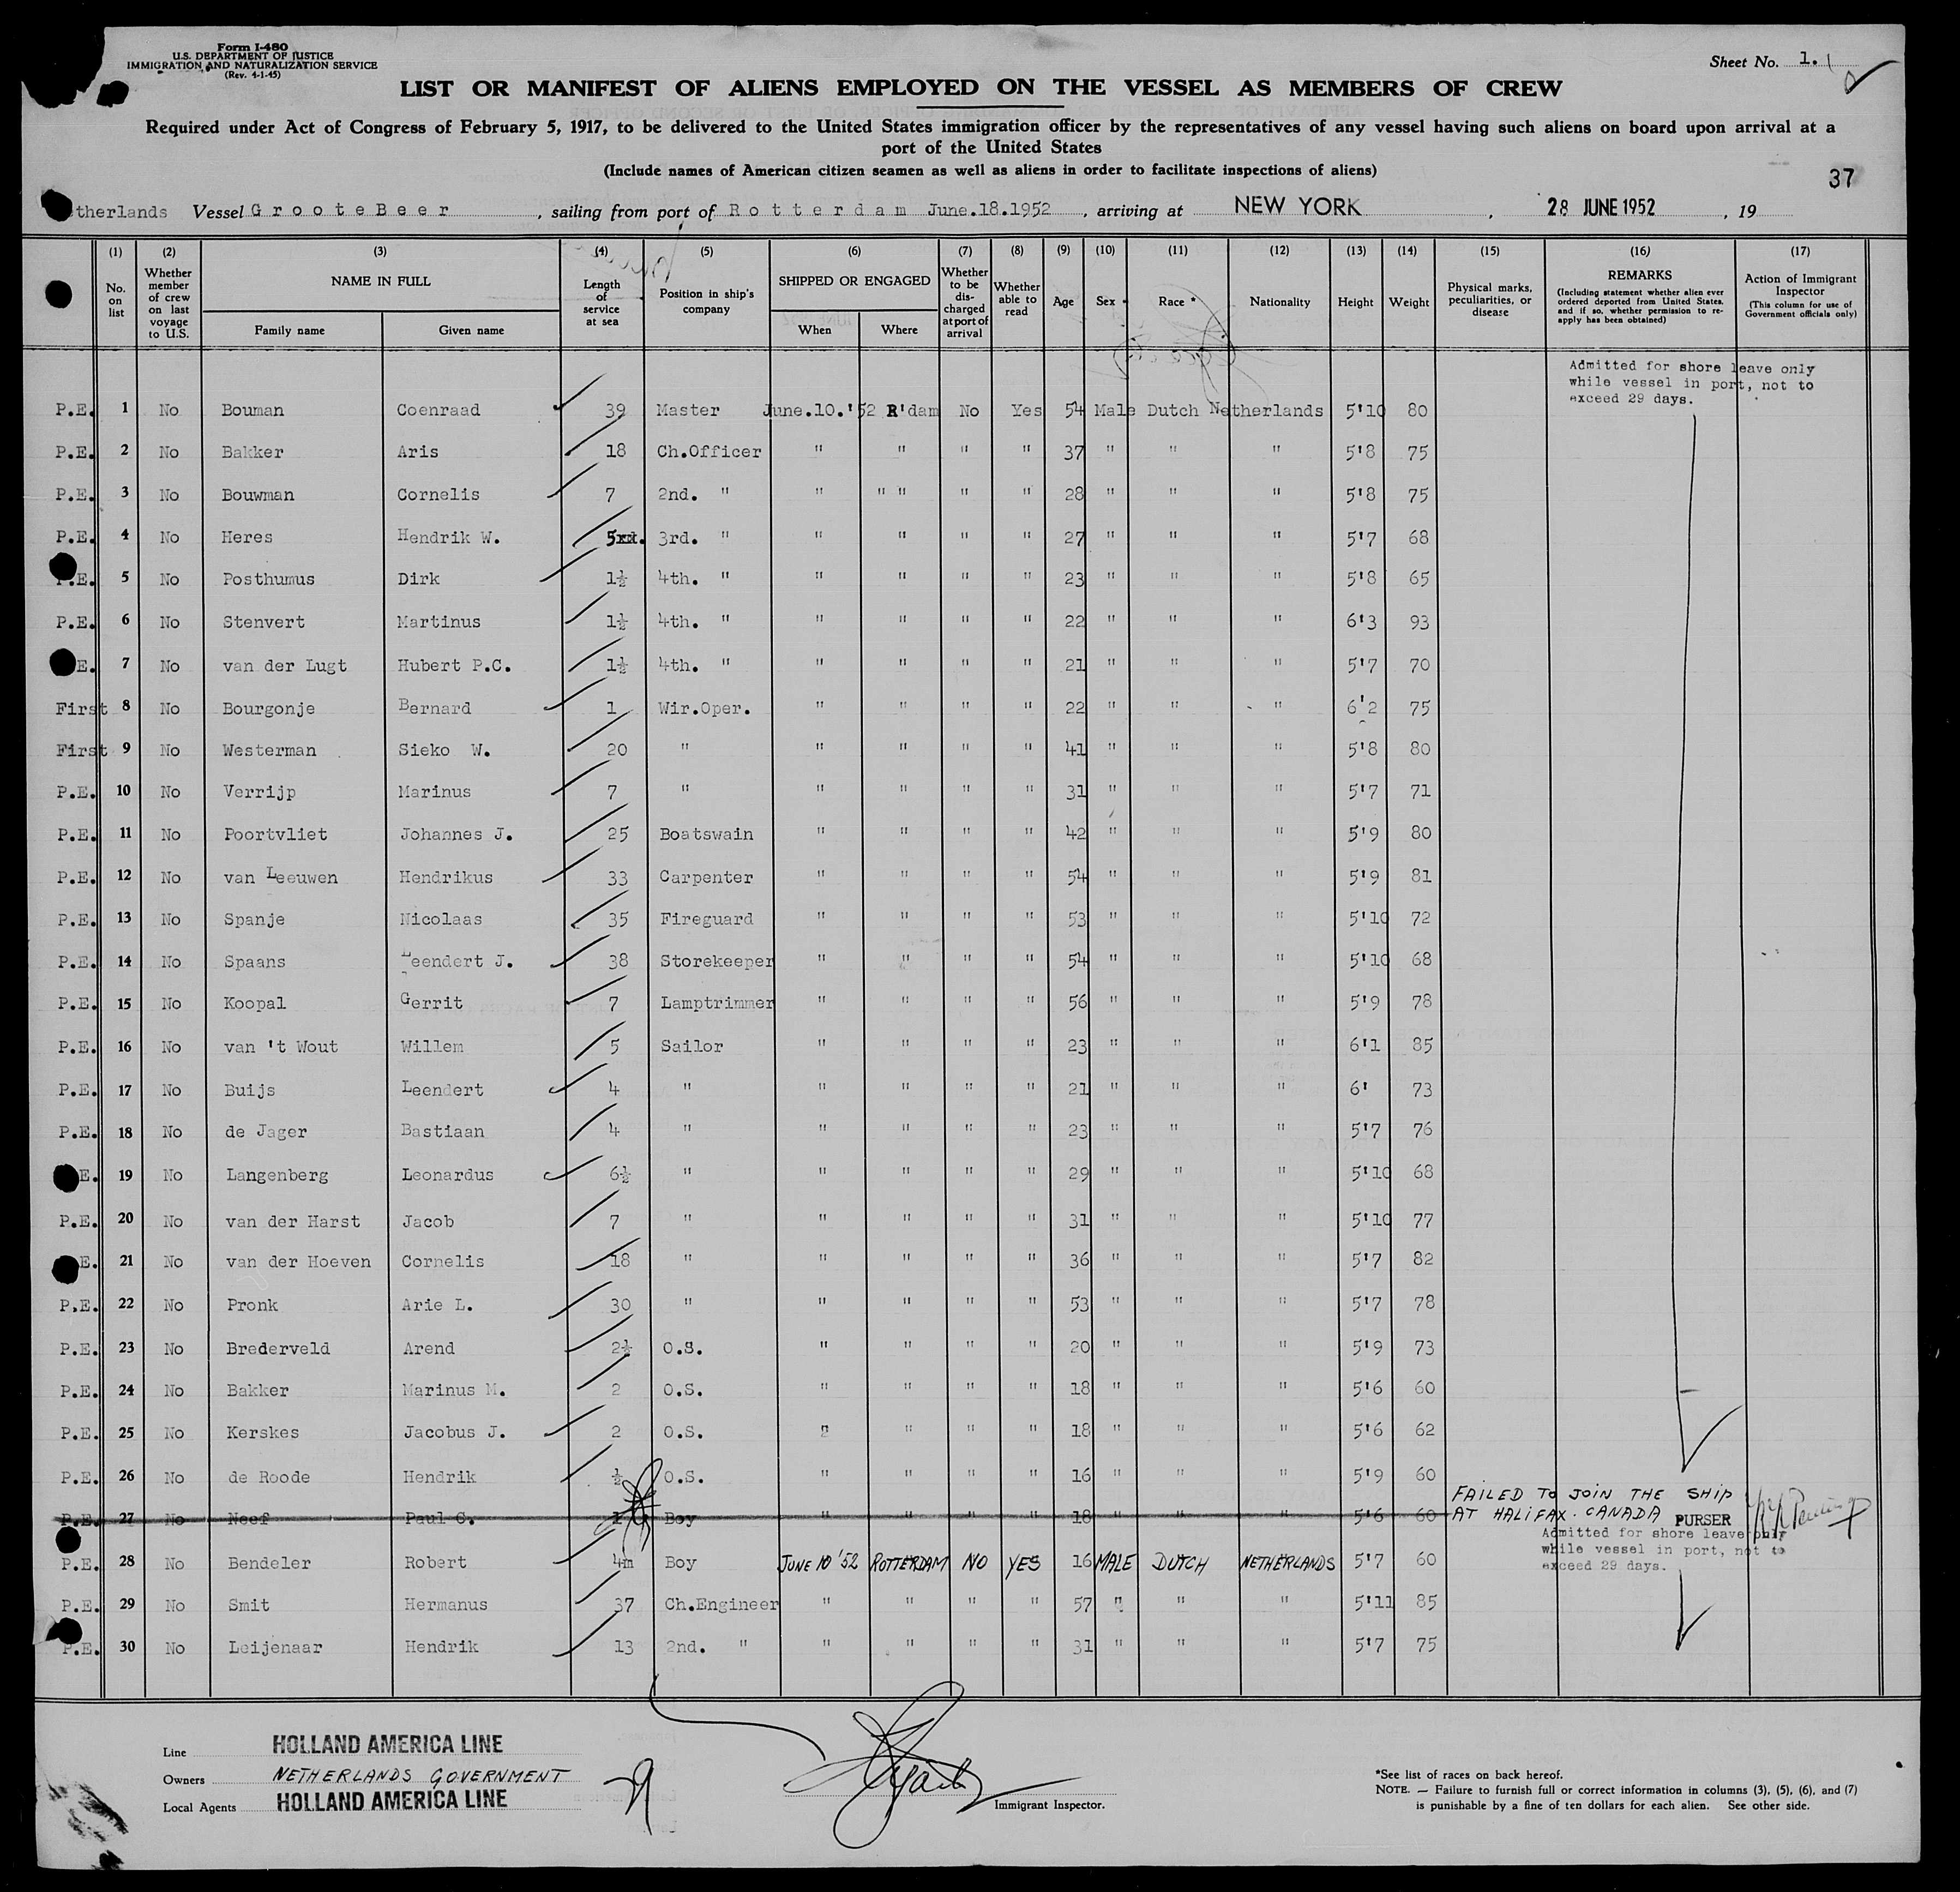 Form I-480
U.S. DEPARTMENT OF JUSTICE
IMMIGRATION AND NATURALIZATION SERVICE
(Rev. 4-1-45)
Sheet No. 1.
LIST OR MANIFEST OF ALIENS EMPLOYED ON THE VESSEL AS MEMBERS OF CREW
Required under Act of Congress of February 5, 1917, to be delivered to the United States immigration officer by the representatives of any vessel having such aliens on board upon arrival at a
port of the United States
(Include names of American citizen seamen as well as aliens in order to facilitate inspections of aliens)
37
therlands Vessel GrooteBeer, sailing from port of Rotterdam June.18.1952, arriving at NEW YORK, 28 JUNE 1952, 19
(1) (2) (3) (4) (5) (6) (7) (8) (9) (10) (11) (12) (13) (14) (15) (16) (17)
No. on list
Whether member of crew on last voyage to U.S.
NAME IN FULL
Family name Given name
Length of service at sea
Position in ship's company
SHIPPED OR ENGAGED
When Where
Whether to be discharged at port of arrival
Whether able to read
Age
Sex
Race *
Nationality
Height
Weight
Physical marks, peculiarities, or disease
REMARKS
(Including statement whether alien ever ordered deported from United States, and if so, whether permission to re-apply has been obtained)
Action of Immigrant Inspector
(This column for use of Government officials only)
Admitted for shore leave only
while vessel in port, not to
exceed 29 days.
P.E. 1 No Bouman Coenraad 39 Master June.10.'52 R'dam No Yes 54 Male Dutch Netherlands 5'10 80
P.E. 2 No Bakker Aris 18 Ch.Officer " " " " 37 " " " 5'8 75
P.E. 3 No Bouwman Cornelis 7 2nd. " " " " " " 28 " " " 5'8 75
P.E. 4 No Heres Hendrik W. 5 3rd. " " " " " 27 " " " 5'7 68
P.E. 5 No Posthumus Dirk 1½ 4th. " " " " " 23 " " " 5'8 65
P.E. 6 No Stenvert Martinus 1½ 4th. " " " " " 22 " " " 6'3 93
E. 7 No van der Lugt Hubert P.C. 1½ 4th. " " " " " 21 " " " 5'7 70
First 8 No Bourgonje Bernard 1 Wir.Oper. " " " " 22 " " " 6'2 75
First 9 No Westerman Sieko W. 20 " " " " " 41 " " " 5'8 80
P.E. 10 No Verrijp Marinus 7 " " " " " 31 " " " 5'7 71
P.E. 11 No Poortvliet Johannes J. 25 Boatswain " " " " 42 " " " 5'9 80
P.E. 12 No van Leeuwen Hendrikus 33 Carpenter " " " " 54 " " " 5'9 81
P.E. 13 No Spanje Nicolaas 35 Fireguard " " " " 53 " " " 5'10 72
P.E. 14 No Spaans Leendert J. 38 Storekeeper " " " " 54 " " " 5'10 68
P.E. 15 No Koopal Gerrit 7 Lamptrimmer " " " " 56 " " " 5'9 78
P.E. 16 No van 't Wout Willem 5 Sailor " " " " 23 " " " 6'1 85
P.E. 17 No Buijs Leendert 4 " " " " " 21 " " " 6' 73
P.E. 18 No de Jager Bastiaan 4 " " " " " 23 " " " 5'7 76
E. 19 No Langenberg Leonardus 6½ " " " " " 29 " " " 5'10 68
P.E. 20 No van der Harst Jacob 7 " " " " " 31 " " " 5'10 77
E. 21 No van der Hoeven Cornelis 18 " " " " " 36 " " " 5'7 82
P.E. 22 No Pronk Arie L. 30 " " " " " 53 " " " 5'7 78
P.E. 23 No Brederveld Arend 2½ O.S. " " " " 20 " " " 5'9 73
P.E. 24 No Bakker Marinus M. 2 O.S. " " " " 18 " " " 5'6 60
P.E. 25 No Kerskes Jacobus J. 2 O.S. " " " " 18 " " " 5'6 62
P.E. 26 No de Roode Hendrik ½ O.S. " " " " 16 " " " 5'9 60
P.E. 27 No Neef Paul C. 1 Boy " " " " 18 " " " 5'6 60 FAILED TO JOIN THE SHIP
AT HALIFAX. CANADA PURSER
Admitted for shore leave only
while vessel in port, not to
exceed 29 days.
P.E. 28 No Bendeler Robert 4m Boy JUNE 10 '52 ROTTERDAM NO YES 16 MALE DUTCH NETHERLANDS 5'7 60
P.E. 29 No Smit Hermanus 37 Ch.Engineer " " " " 57 " " " 5'11 85
P.E. 30 No Leijenaar Hendrik 13 2nd. " " " " " 31 " " " 5'7 75
Line HOLLAND AMERICA LINE
Owners NETHERLANDS GOVERNMENT
Local Agents HOLLAND AMERICA LINE
Immigrant Inspector.
*See list of races on back hereof.
NOTE. — Failure to furnish full or correct information in columns (3), (5), (6), and (7)
is punishable by a fine of ten dollars for each alien. See other side.